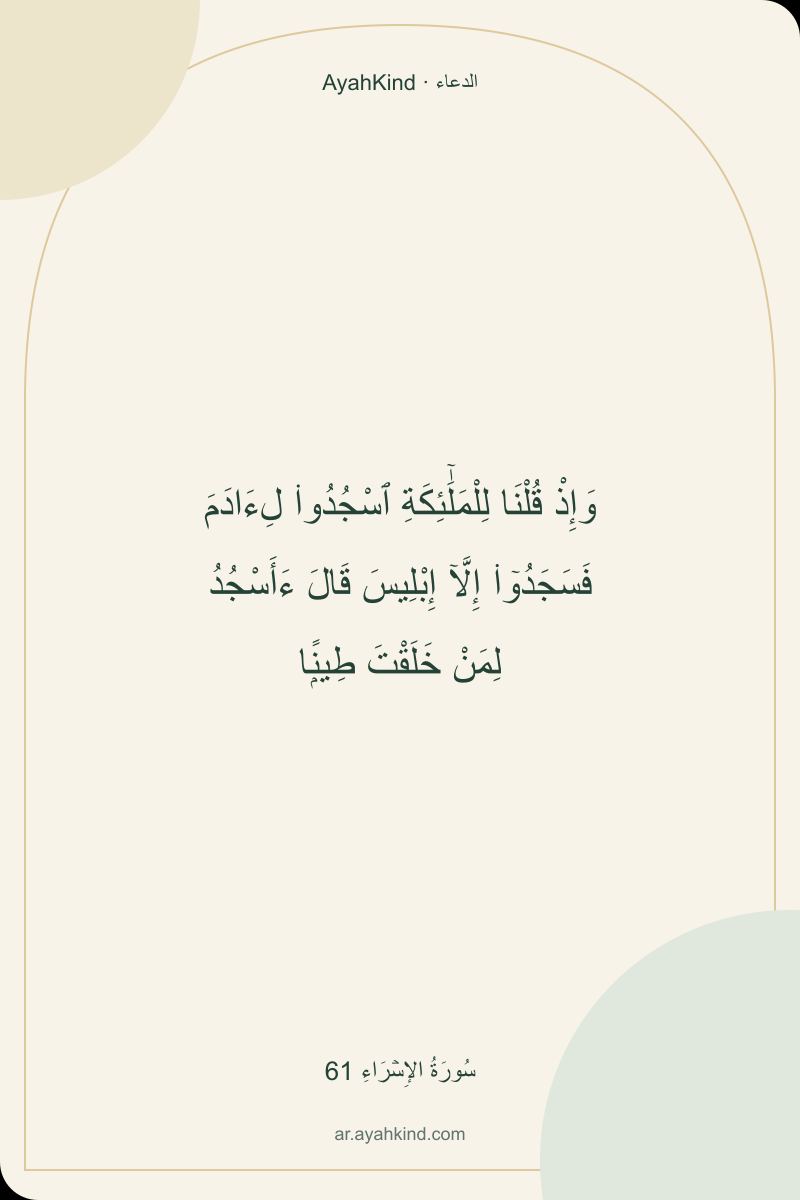 AyahKind · الدعاء
وَإِذْ قُلْنَا لِلْمَلَٰٓئِكَةِ ٱسْجُدُوا۟ لِءَادَمَ
فَسَجَدُوٓا۟ إِلَّآ إِبْلِيسَ قَالَ ءَأَسْجُدُ
لِمَنْ خَلَقْتَ طِينًۭا
سُورَةُ الإِسۡرَاءِ 61
ar.ayahkind.com